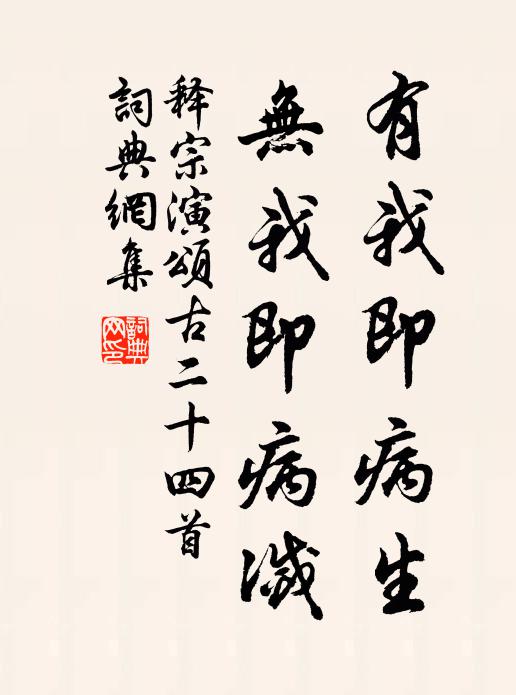 有我即病生
無我即病滅
释宗演頌古二十四首
詞典網集
詞典网印